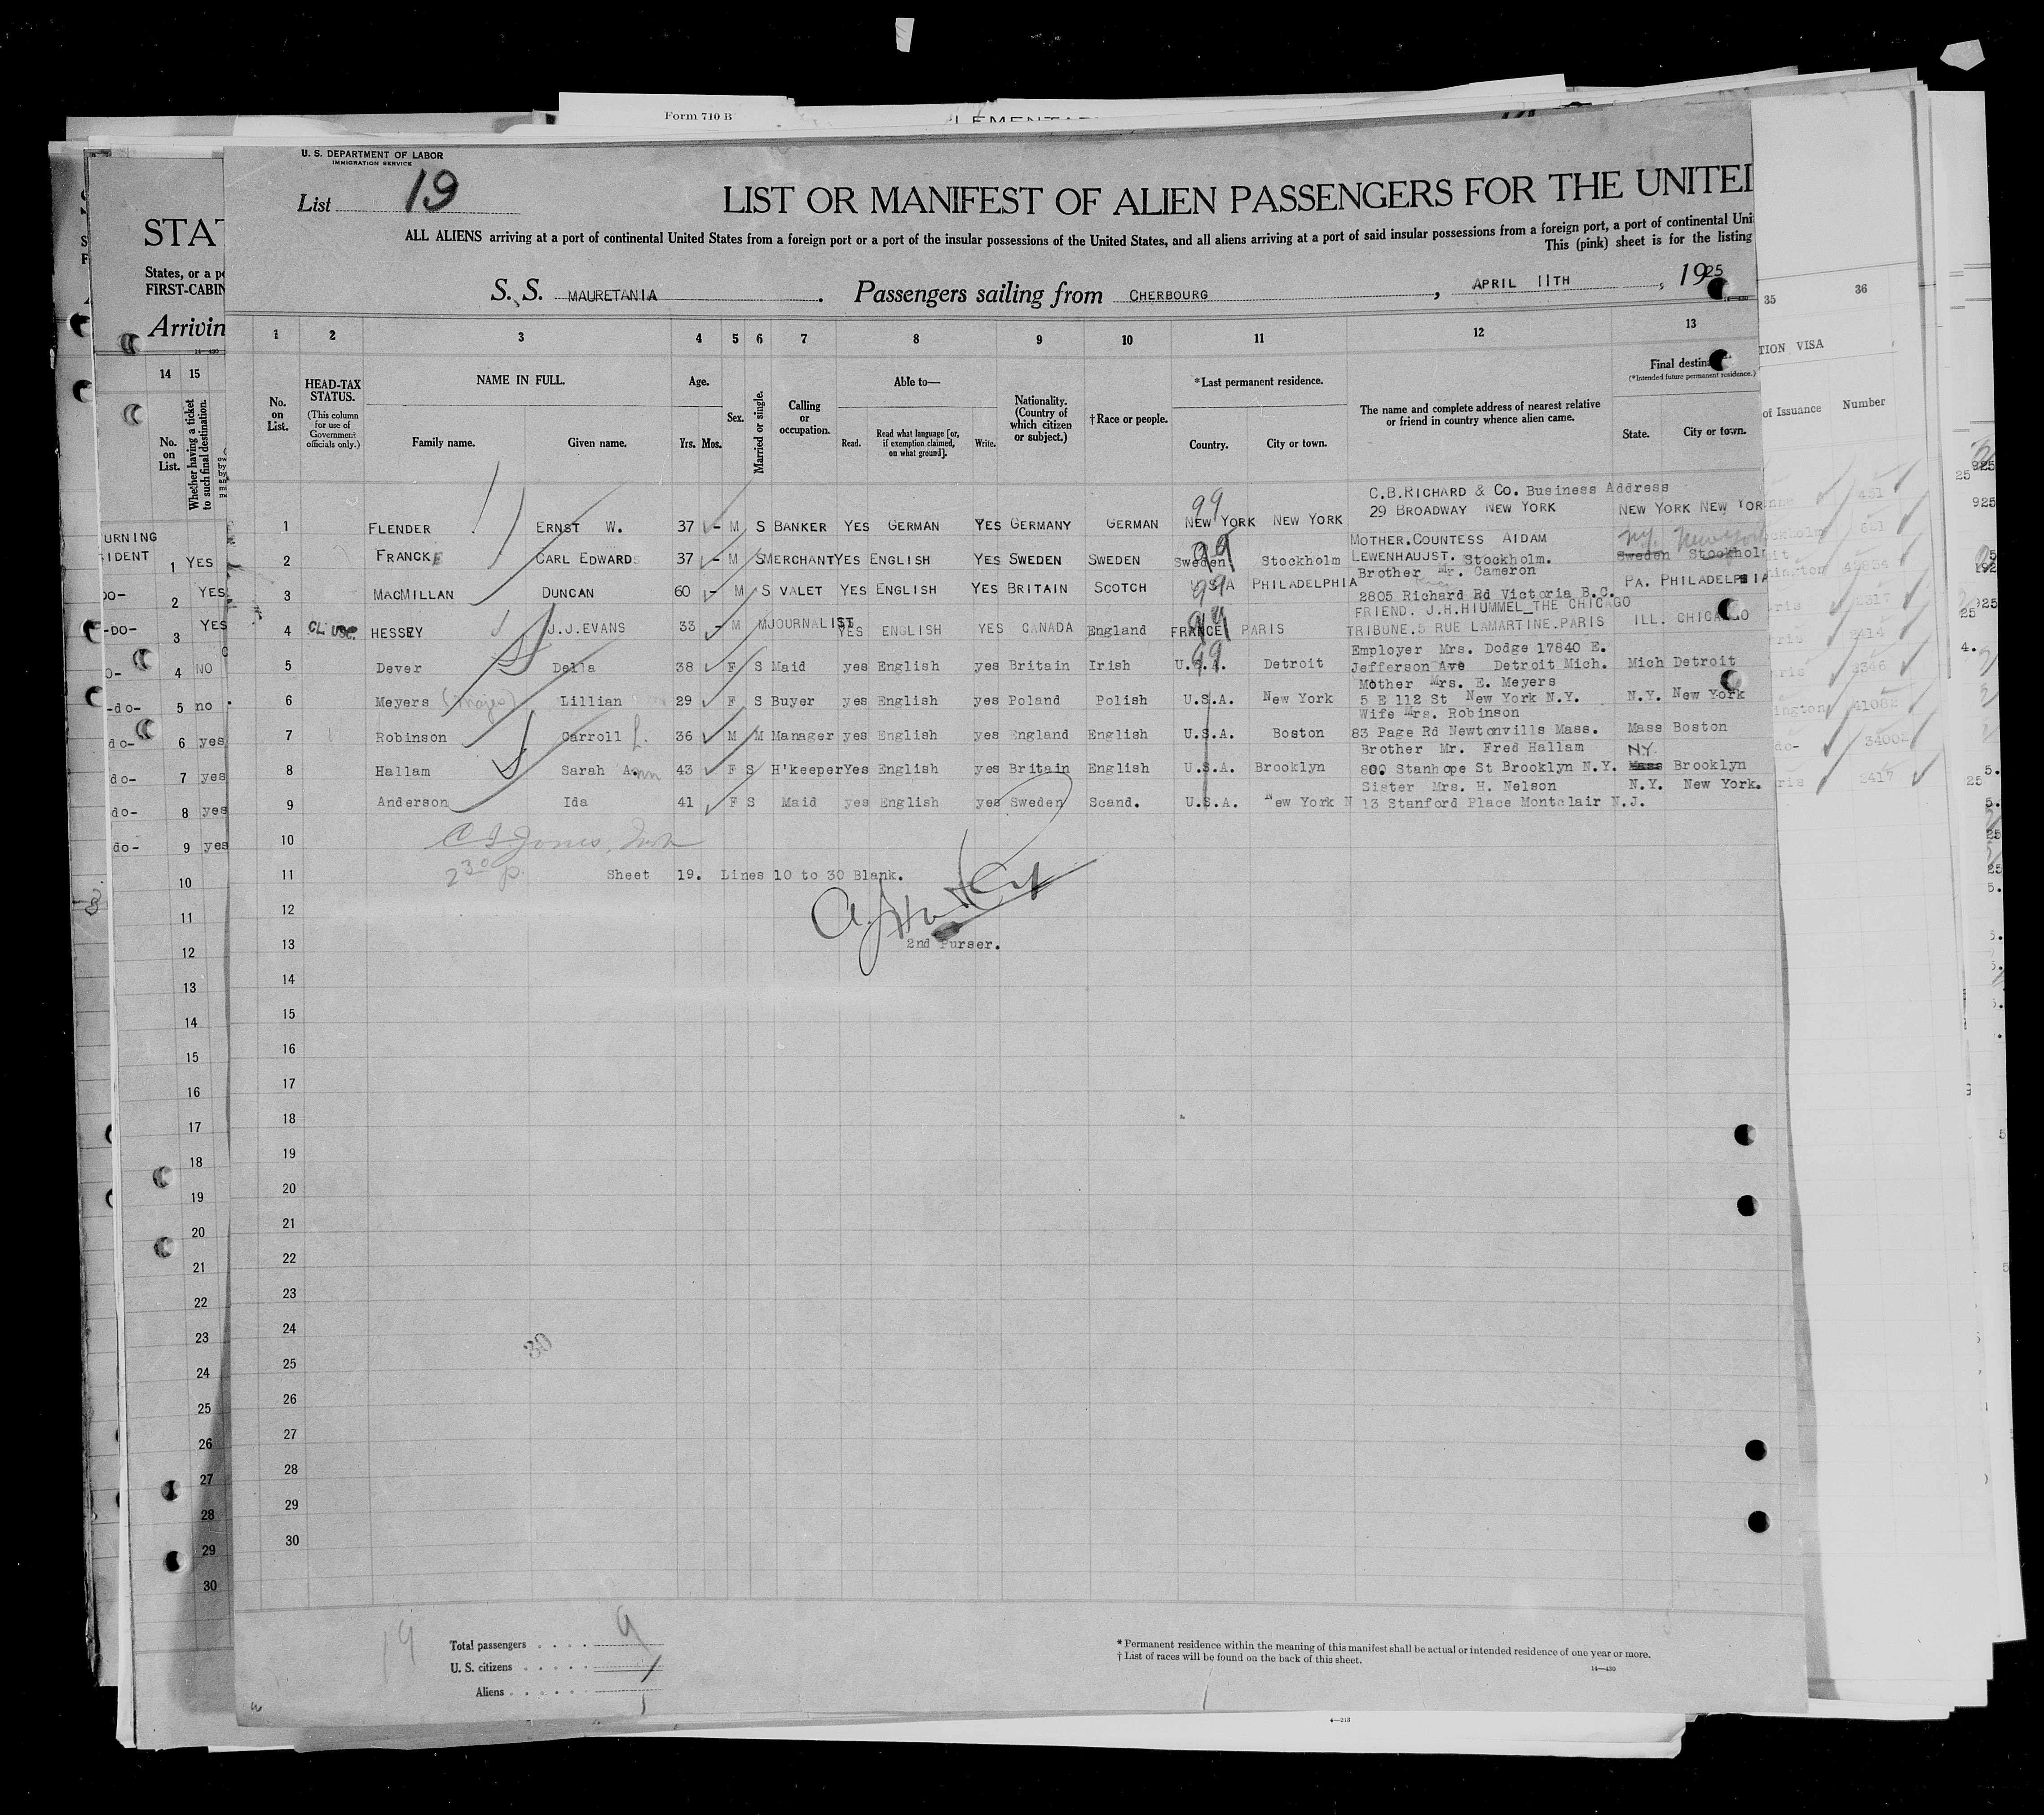 Form 710 B
U. S. DEPARTMENT OF LABOR
IMMIGRATION SERVICE
List 19
LIST OR MANIFEST OF ALIEN PASSENGERS FOR THE UNITE
ALL ALIENS arriving at a port of continental United States from a foreign port or a port of the insular possessions of the United States, and all aliens arriving at a port of said insular possessions from a foreign port, a port of continental Uni
This (pink) sheet is for the listing
S. S. MAURETANIA . Passengers sailing from CHERBOURG , APRIL 11TH , 1925
1 2 3 4 5 6 7 8 9 10 11 12 13
No. on List.
HEAD-TAX STATUS.
(This column for use of Government officials only.)
NAME IN FULL.
Family name. Given name.
Age.
Yrs. Mos.
Sex.
Married or single.
Calling or occupation.
Able to—
Read. Read what language [or, if exemption claimed, on what ground]. Write.
Nationality. (Country of which citizen or subject.)
†Race or people.
*Last permanent residence.
Country. City or town.
The name and complete address of nearest relative or friend in country whence alien came.
Final destin
(*Intended future permanent residence.)
State. City or town.
C.B.RICHARD & Co. Business Address
1 FLENDER ERNST W. 37 - M S BANKER YES GERMAN YES GERMANY GERMAN NEW YORK NEW YORK 29 BROADWAY NEW YORK NEW YORK NEW YOR
99
MOTHER.COUNTESS AIDAM N.Y. New York
2 FRANCKE CARL EDWARDS 37 - M S MERCHANT YES ENGLISH YES SWEDEN SWEDEN Sweden Stockholm LEWENHAUJST. Stockholm. Sweden Stockholm
99
Brother Mr. Cameron
3 MACMILLAN DUNCAN 60 - M S VALET YES ENGLISH YES BRITAIN SCOTCH USA PHILADELPHIA 2805 Richard Rd Victoria B.C. PA. PHILADELPHIA
99
FRIEND. J.H.HIUMMEL THE CHICAGO
4 HESSEY J.J.EVANS 33 - M M JOURNALIST YES ENGLISH YES CANADA England FRANCE PARIS TRIBUNE.5 RUE LAMARTINE.PARIS ILL. CHICAGO
99
Employer Mrs. Dodge 17840 E.
5 Dever Della 38 F S Maid yes English yes Britain Irish U.S.A. Detroit Jefferson Ave Detroit Mich. Mich Detroit
99
Mother Mrs. E. Meyers
6 Meyers Lillian 29 F S Buyer yes English yes Poland Polish U.S.A. New York 5 E 112 St New York N.Y. N.Y. New York
Wife Mrs. Robinson
7 Robinson Carroll L. 36 M M Manager yes English yes England English U.S.A. Boston 83 Page Rd Newtonvills Mass. Mass Boston
Brother Mr. Fred Hallam NY.
8 Hallam Sarah Ann 43 F S H'keeper Yes English yes Britain English U.S.A. Brooklyn 800 Stanhope St Brooklyn N.Y. Mass Brooklyn
Sister Mrs. H. Nelson N.Y. New York.
9 Anderson Ida 41 F S Maid yes English yes Sweden Scand. U.S.A. New York N 13 Stanford Place Montclair N.J.
10
11 Sheet 19. Lines 10 to 30 Blank.
230 p.
12
13 2nd Purser.
14
15
16
17
18
19
20
21
22
23
24
30
25
26
27
28
29
30
19
Total passengers . . . . 9
U. S. citizens . . . . .
Aliens . . . . . .
* Permanent residence within the meaning of this manifest shall be actual or intended residence of one year or more.
† List of races will be found on the back of this sheet.
14—430
STAT
States, or a po
FIRST-CABIN
Arrivin
14 15
No. on List.
Whether having a ticket to such final destination.
URNING
IDENT
1 YES
2 YES
3 YES
4 NO
5 no
6 yes
7 yes
8 yes
9 yes
10
11
12
13
14
15
16
17
18
19
20
21
22
23
24
25
26
27
28
29
30
35 36
TION VISA
of Issuance Number
4—213